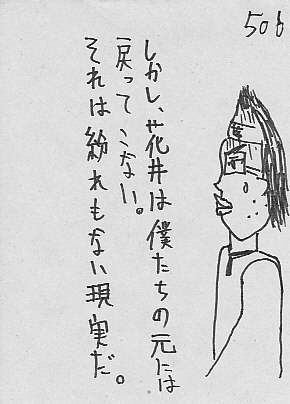 506
しかし、花井は僕たちの元には
戻ってこない。
それは紛れもない現実だ。